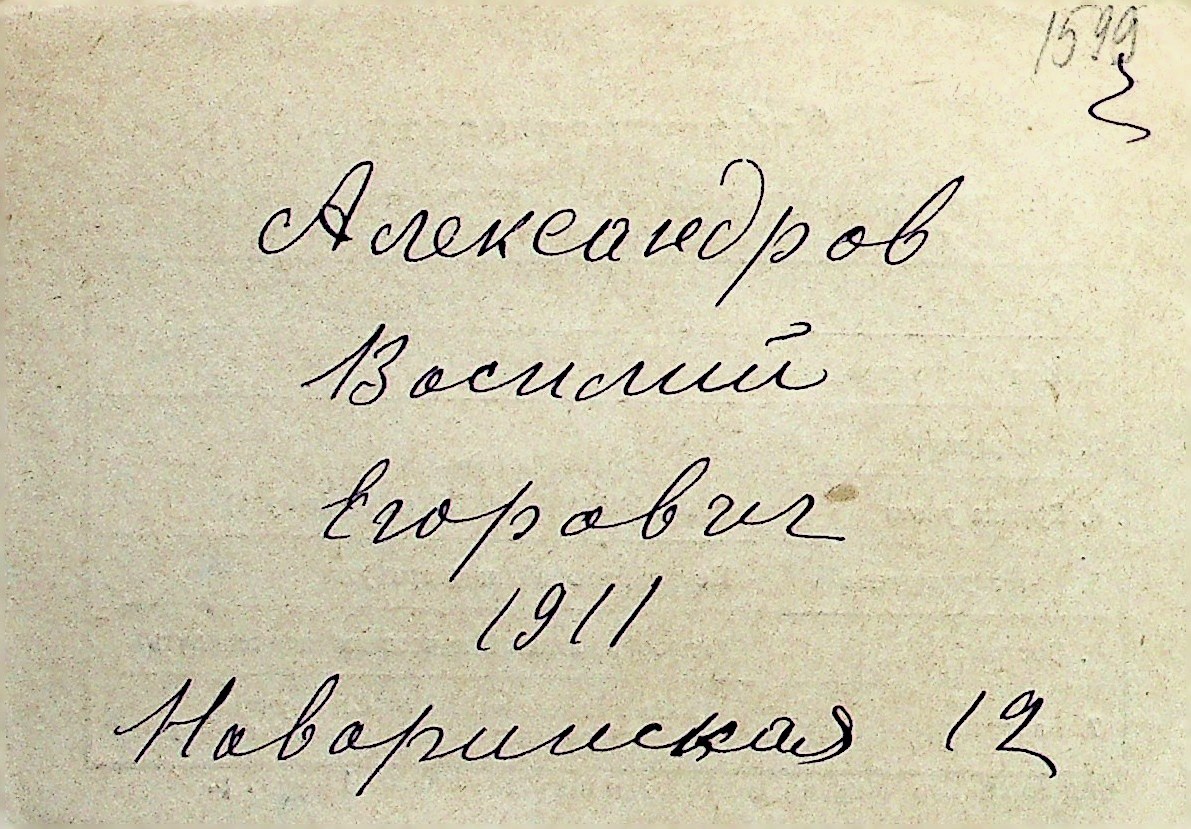 1599
Александров
Василий
Егорович
1911
Наваринская 12